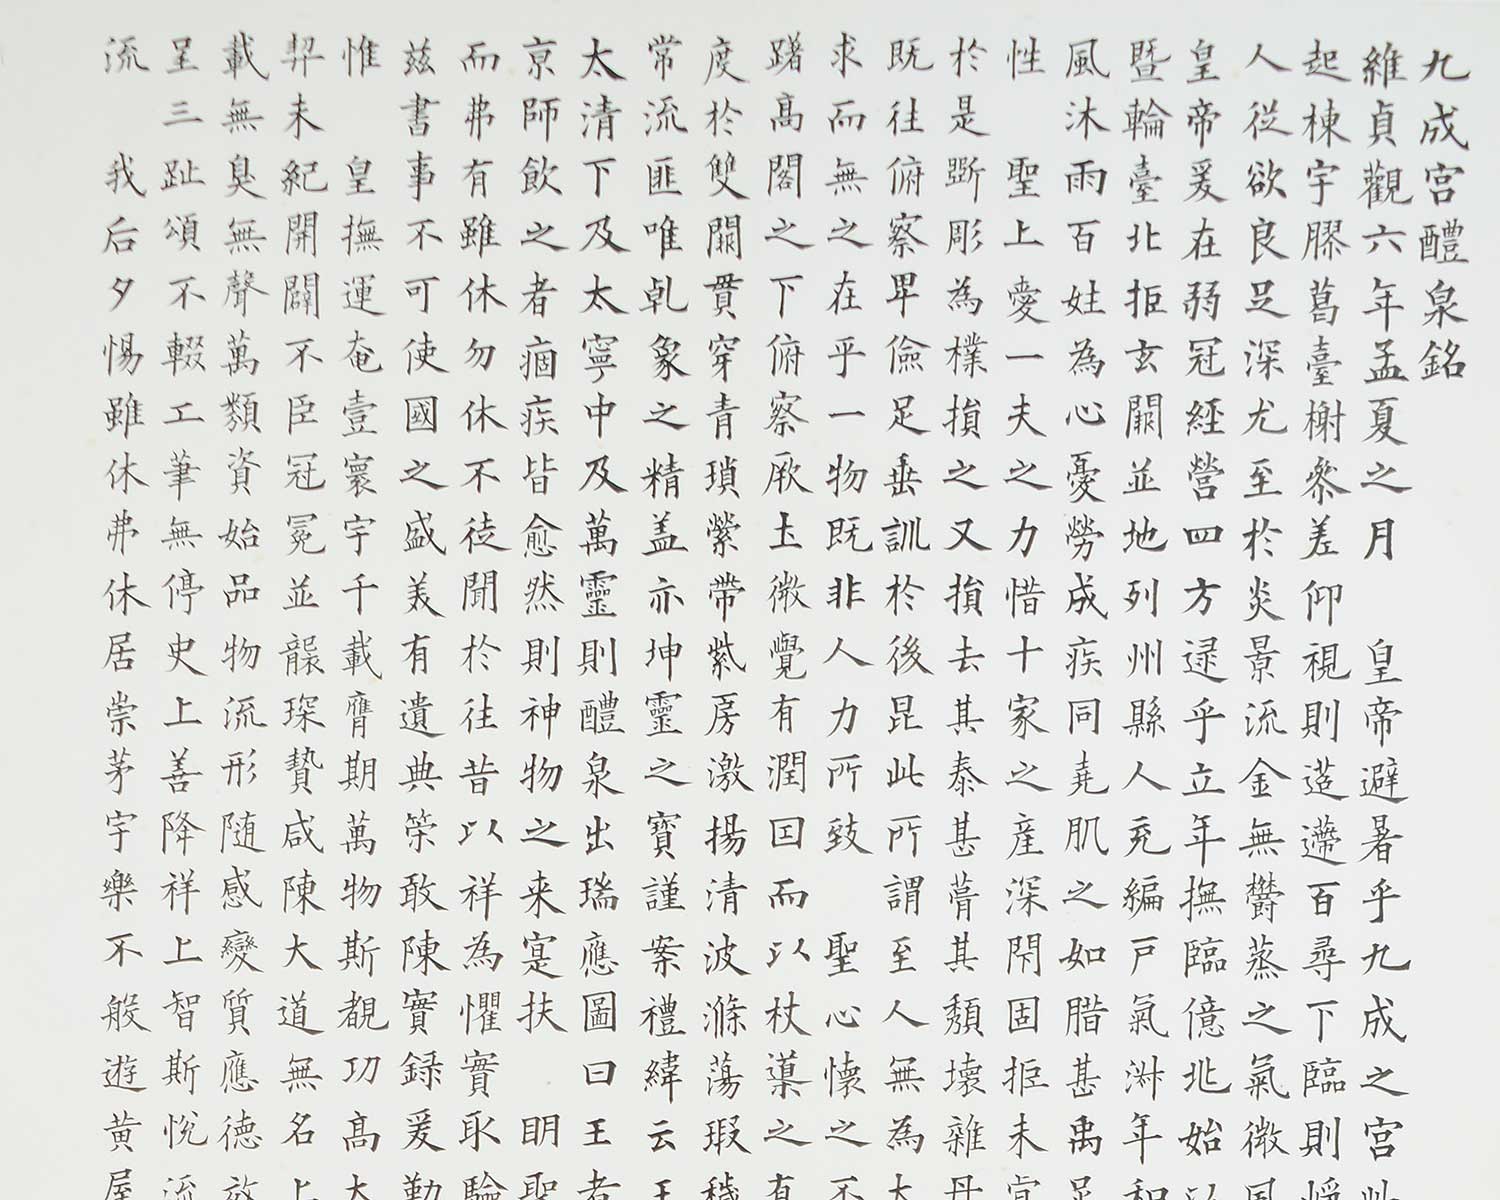 九成宮醴泉銘
維貞觀六年孟夏之月　皇帝避暑乎九成之宮此
起棟宇膠葛臺榭叅差仰視則迢遰百尋下臨則崢
人從欲良足深尤至於炎景流金無欝蒸之氣微風
皇帝爰在弱冠經營四方逮乎立年撫臨億兆始以
暨輪臺北拒玄闕並地列州縣人充編戶氣淑年和
風沐雨百姓為心憂勞成疾同堯肌之如腊甚禹足
性　聖上愛一夫之力惜十家之產深閇固拒未肯
於是斲彫為樸損之又損去其泰甚葺其頹壞雜丹
既往俯察卑儉足垂訓於後昆此所謂至人無為大
求而無之在乎一物既非人力所致　聖心懷之不
躇高閣之下俯察厥土微覺有潤因而以杖導之有
度於雙闕貫穿青瑣縈帶紫房激揚清波滌蕩瑕穢
常流匪唯乹象之精盖亦坤靈之寶謹案禮緯云王
太清下及太寧中及萬靈則醴泉出瑞應圖曰王者
京師飲之者痼疾皆愈然則神物之来寔扶　明聖
而弗有雖休勿休不徒聞於往昔以祥為懼實取驗
兹書事不可使國之盛美有遺典策敢陳實録爰勤
惟　皇撫運奄壹寰宇千載膺期萬物斯覩功高大
栔未紀開闢不臣冠冕並襲琛贄咸陳大道無名上
載無臭無聲萬類資始品物流形随感變質應德效
呈三趾頌不輟工筆無停史上善降祥上智斯悅流
流　我后夕惕雖休弗休居崇茅宇樂不般遊黃屋